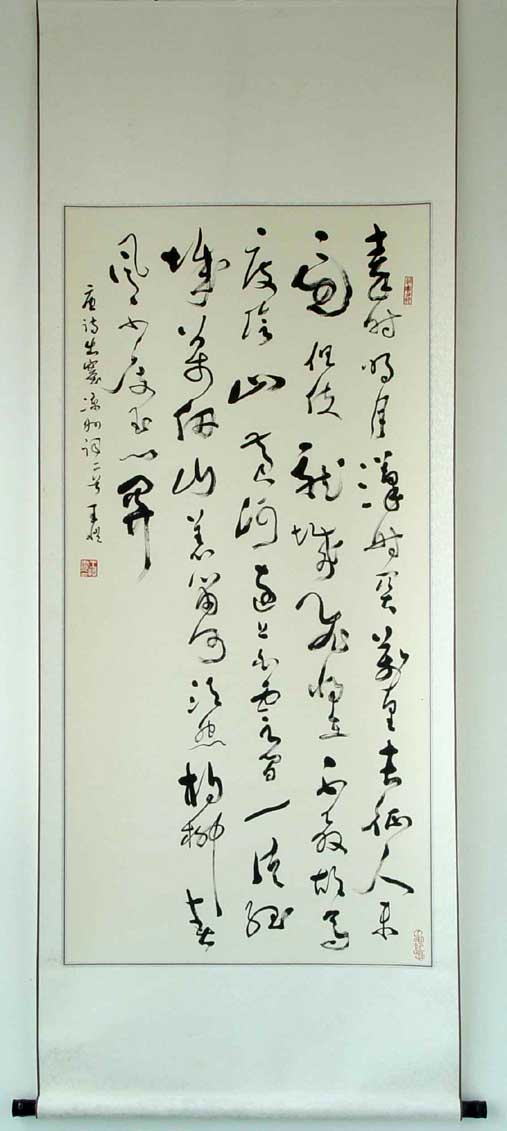 秦时明月漢时关萬里长征人未
还但使龙城飞将在不教胡马
度陰山黄河遠上白雲間一片孤
城萬仞山羌笛何须怨杨柳春
风不度玉门関
唐诗出塞凉州词二首